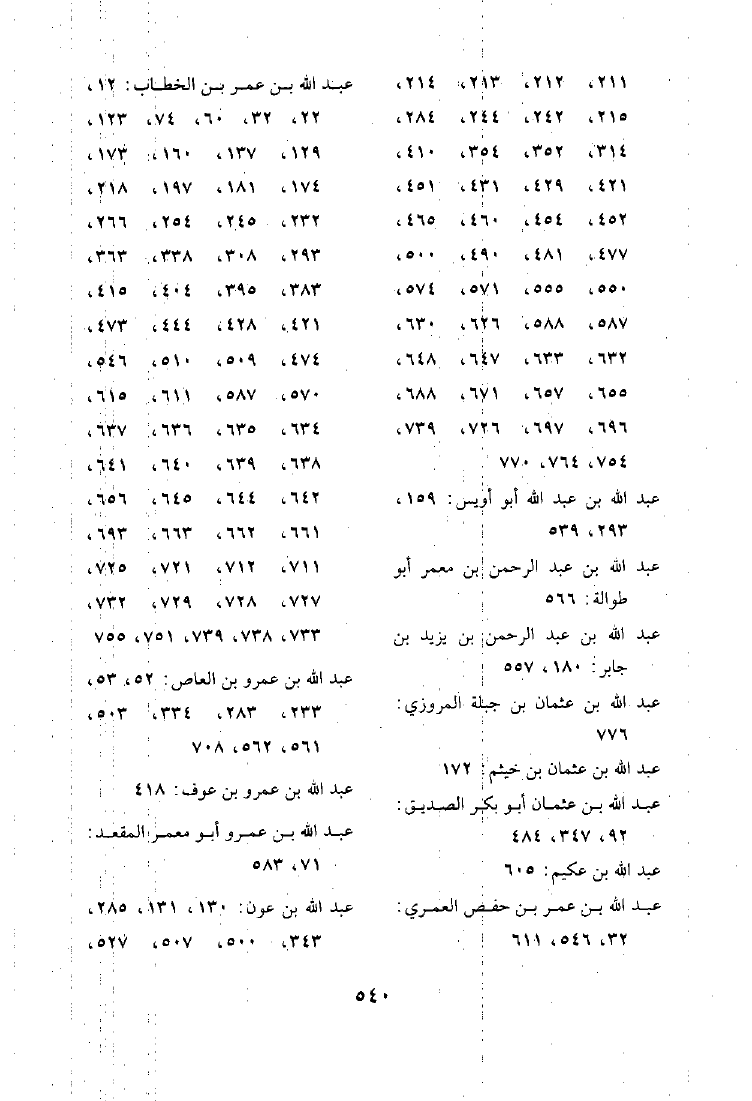 ٢١١، ٢١٢، ٢١٣، ٢١٤،
٢١٥، ٢٤٢، ٢٤٤، ٢٨٤،
٣١٤، ٣٥٢، ٣٥٤، ٤١٠،
٤٢١، ٤٢٩، ٤٣١، ٤٥١،
٤٥٢، ٤٥٤، ٤٦٠، ٤٦٥،
٤٧٧، ٤٨١، ٤٩٠، ٥٠٠،
٥٥٠، ٥٥٥، ٥٧١، ٥٧٤،
٥٨٧، ٥٨٨، ٦٢٦، ٦٣٠،
٦٣٢، ٦٣٣، ٦٤٧، ٦٤٨،
٦٥٥، ٦٥٧، ٦٧١، ٦٨٨،
٦٩٦، ٦٩٧، ٧٢٦، ٧٣٩،
٧٥٤، ٧٦٤، ٧٧٠
عبد الله بن عبد الله أبو أويس: ١٥٩،
٢٩٣، ٥٣٩
عبد الله بن عبد الرحمن بن معمر أبو
طوالة: ٥٦٦
عبد الله بن عبد الرحمن بن يزيد بن
جابر: ١٨٠، ٥٥٧
عبد الله بن عثمان بن جبلة المروزي:
٧٧٦
عبد الله بن عثمان بن خيثم: ١٧٢
عبد الله بن عثمان أبو بكر الصديق:
٩٢، ٣٤٧، ٤٨٤
عبد الله بن عكيم: ٦٠٥
عبد الله بن عمر بن حفص العمري:
٣٢، ٥٤٦، ٦١١
عبد الله بن عمر بن الخطاب: ١٢،
٢٢، ٣٢، ٦٠، ٧٤، ١٢٣،
١٢٩، ١٣٧، ١٦٠، ١٧٣،
١٧٤، ١٨١، ١٩٧، ٢١٨،
٢٣٢، ٢٤٥، ٢٥٤، ٢٦٦،
٢٩٣، ٣٠٨، ٣٣٨، ٣٦٣،
٣٨٣، ٣٩٥، ٤٠٤، ٤١٥،
٤٢١، ٤٢٨، ٤٤٤، ٤٧٣،
٤٧٤، ٥٠٩، ٥١٠، ٥٤٦،
٥٧٠، ٥٨٧، ٦١١، ٦١٥،
٦٣٤، ٦٣٥، ٦٣٦، ٦٣٧،
٦٣٨، ٦٣٩، ٦٤٠، ٦٤١،
٦٤٢، ٦٤٤، ٦٤٥، ٦٥٦،
٦٦١، ٦٦٢، ٦٦٣، ٦٩٣،
٧١١، ٧١٢، ٧٢١، ٧٢٥،
٧٢٧، ٧٢٨، ٧٢٩، ٧٣٢،
٧٣٣، ٧٣٨، ٧٣٩، ٧٥١، ٧٥٥
عبد الله بن عمرو بن العاص: ٥٢، ٥٣،
٢٣٣، ٢٨٣، ٣٣٤، ٥٠٣،
٥٦١، ٥٦٢، ٧٠٨
عبد الله بن عمرو بن عوف: ٤١٨
عبد الله بن عمرو أبو معمر المقعد:
٧١، ٥٨٣
عبد الله بن عون: ١٣٠، ١٣١، ٢٨٥،
٣٤٣، ٥٠٠، ٥٠٧، ٥٢٧،
٥٤٠